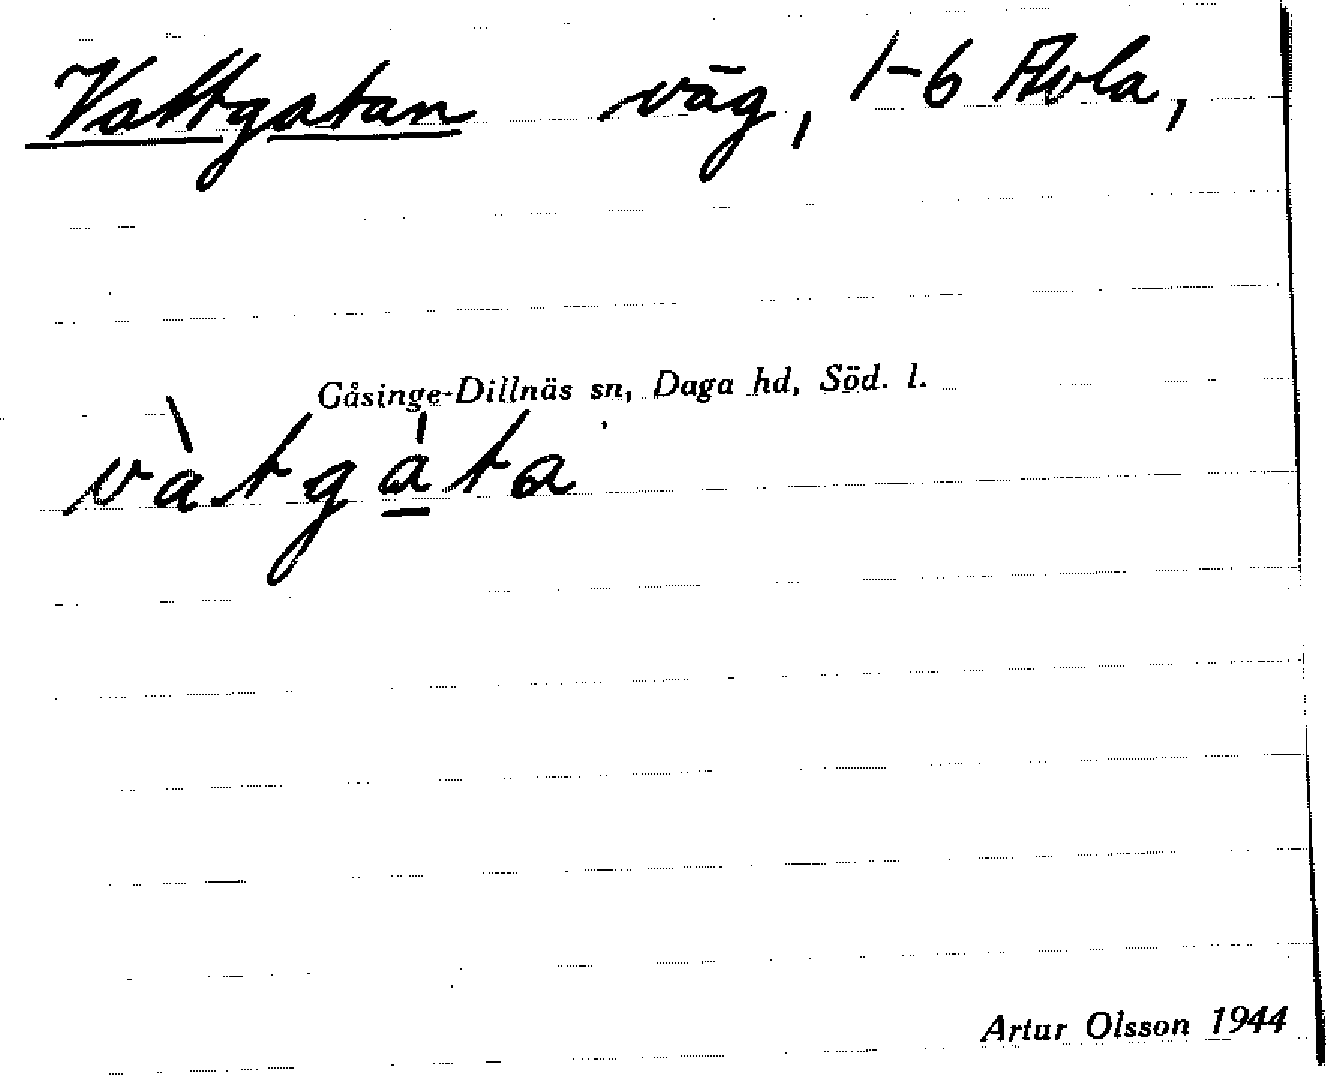 Vattgatan väg, 1-6 Avla,
Gåsinge-Dillnäs sn, Daga hd, Söd. l.
vàtgáta
Artur Olsson 1944